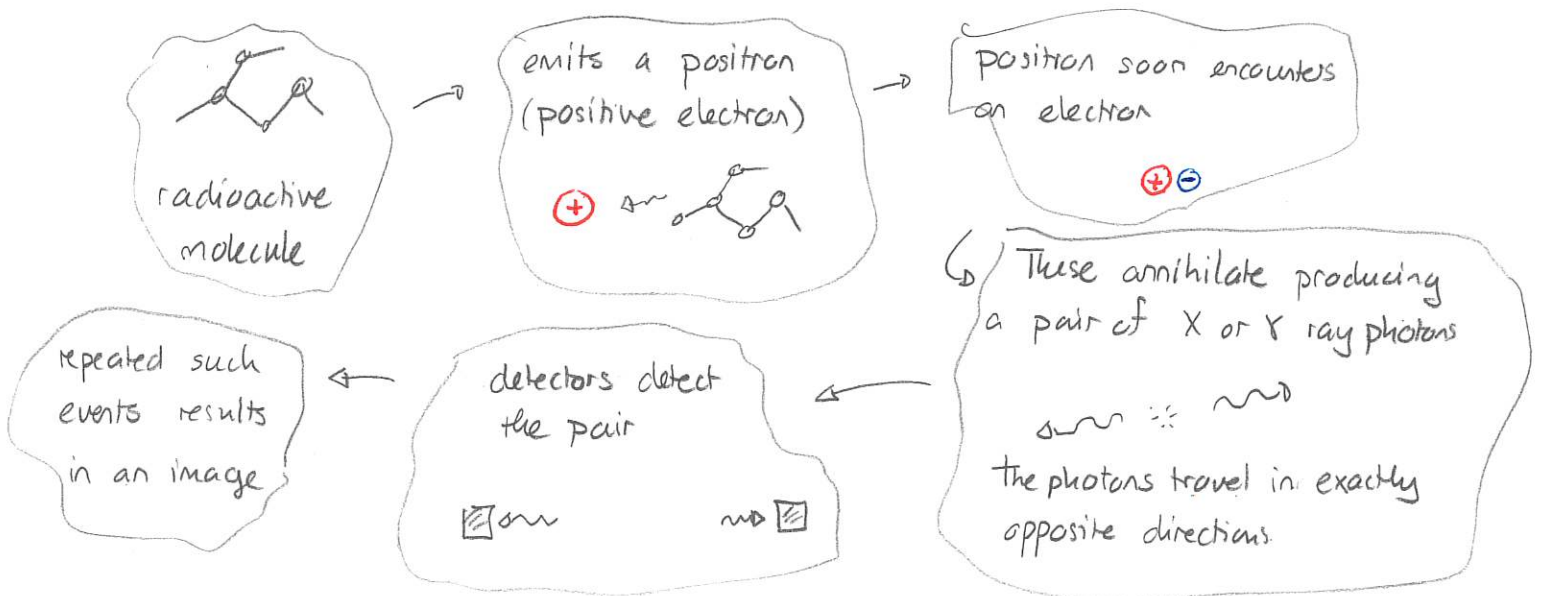 radioactive
molecule
emits a positron
(positive electron)
+
positron soon encounters
an electron
+ -
These annihilate producing
a pair of X or γ ray photons
the photons travel in exactly
opposite directions.
detectors detect
the pair
repeated such
events results
in an image